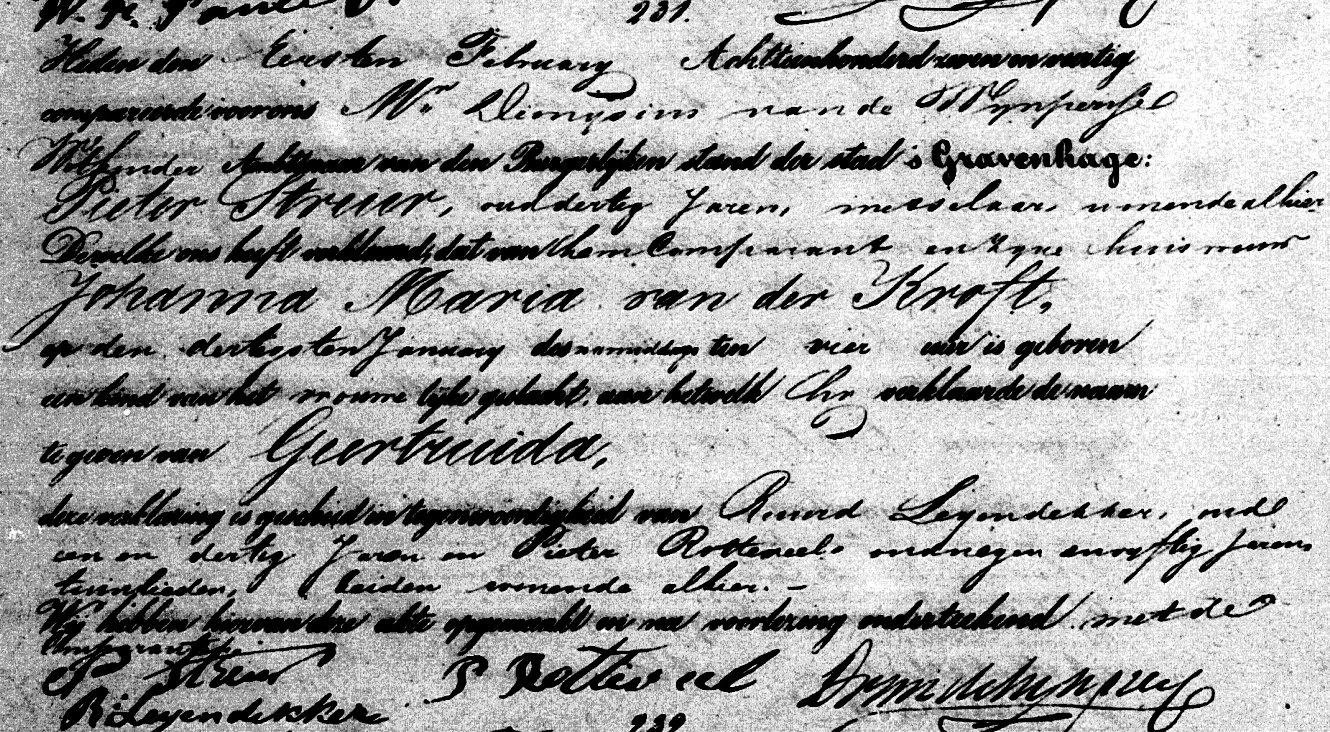 231.
Heden den Eersten February Achttienhonderd zeven en veertig
compareerde voor ons Mr. Dionysius van de Wynpersse
Wethouder Ambtenaar van den Burgerlijken stand der stad 's Gravenhage:
Pieter Streur, oud dertig Jaren, metselaar, wonende alhier
Dewelke ons heeft verklaard, dat van hem Comparant en zyne huisvrouw
Johanna Maria van der Kroft,
op den dertigsten January des namiddags ten vier uur is geboren
een kind van het vrouwelijk geslacht, aan hetwelk hy verklaarde de naam
te geven van Geertruida,
deze verklaring is geschied in tegenwoordigheid van Ruurd Leyendekker, oud
een en dertig Jaren en Pieter Rotteveel oud negen en vyftig Jaren,
tuinlieden, beiden wonende alhier. –
Wij hebben hiervan deze akte opgemaakt en na voorlezing onderteekend met de
Comparanten
P Streur P Rotteveel
R Leyendekker
232